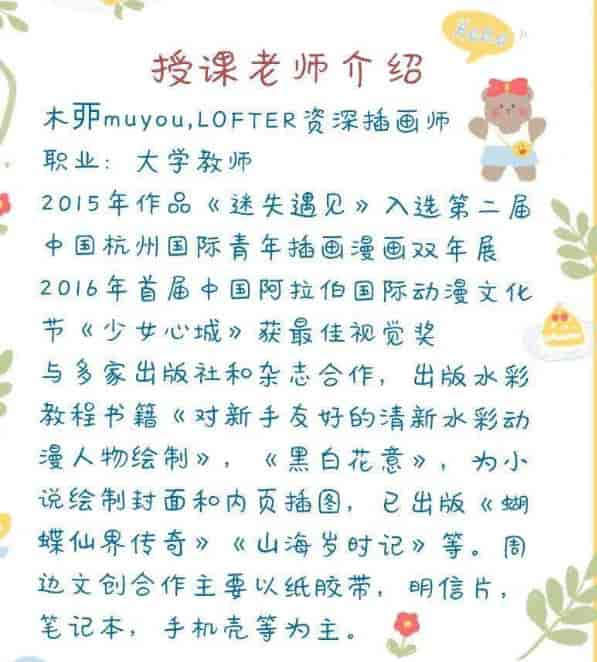 授课老师介绍
木丣muyou,LOFTER资深插画师
职业：大学教师
2015年作品《迷失遇见》入选第二届
中国杭州国际青年插画漫画双年展
2016年首届中国阿拉伯国际动漫文化
节《少女心城》获最佳视觉奖
与多家出版社和杂志合作，出版水彩
教程书籍《对新手友好的清新水彩动
漫人物绘制》，《黑白花意》，为小
说绘制封面和内页插图，已出版《蝴
蝶仙界传奇》《山海岁时记》等。周
边文创合作主要以纸胶带，明信片，
笔记本，手机壳等为主。